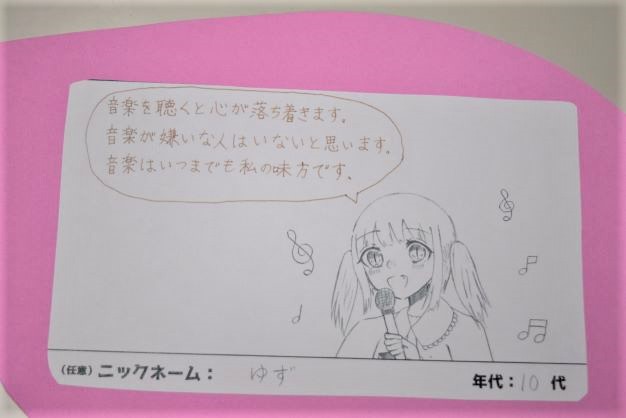 音楽を聴くと心が落ち着きます。
音楽が嫌いな人はいないと思います。
音楽はいつまでも私の味方です。
(任意) ニックネーム： ゆず
年代：10 代